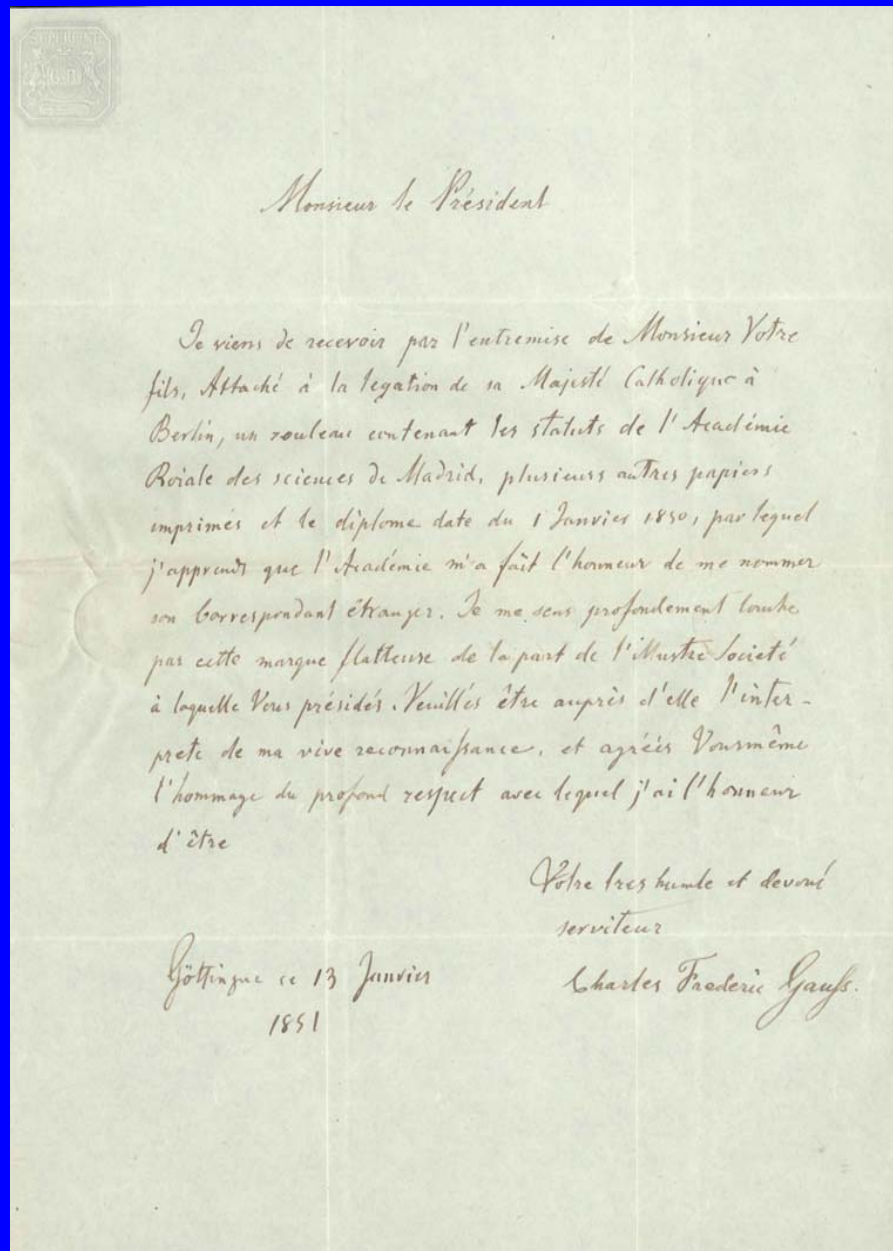 Monsieur le Président
Je viens de recevoir par l'entremise de Monsieur Votre
fils, Attaché à la legation de sa Majesté Catholique à
Berlin, un rouleau contenant les statuts de l'Académie
Roiale des sciences de Madrid, plusieurs autres papiers
imprimés et le diplome date du 1 Janvier 1850, par lequel
j'apprends que l'Académie m'a fait l'honneur de me nommer
son Correspondant étranger. Je me sens profondement touche
par cette marque flatteuse de la part de l'illustre Societé
à laquelle Vous présidés. Veuillés être auprès d'elle l'inter-
prete de ma vive reconnaissance, et agréés Vousmême
l'hommage du profond respect avec lequel j'ai l'honneur
d'être
Votre tres humle et devoué
serviteur
Göttingue ce 13 Janvier
1851
Charles Frederic Gauss.